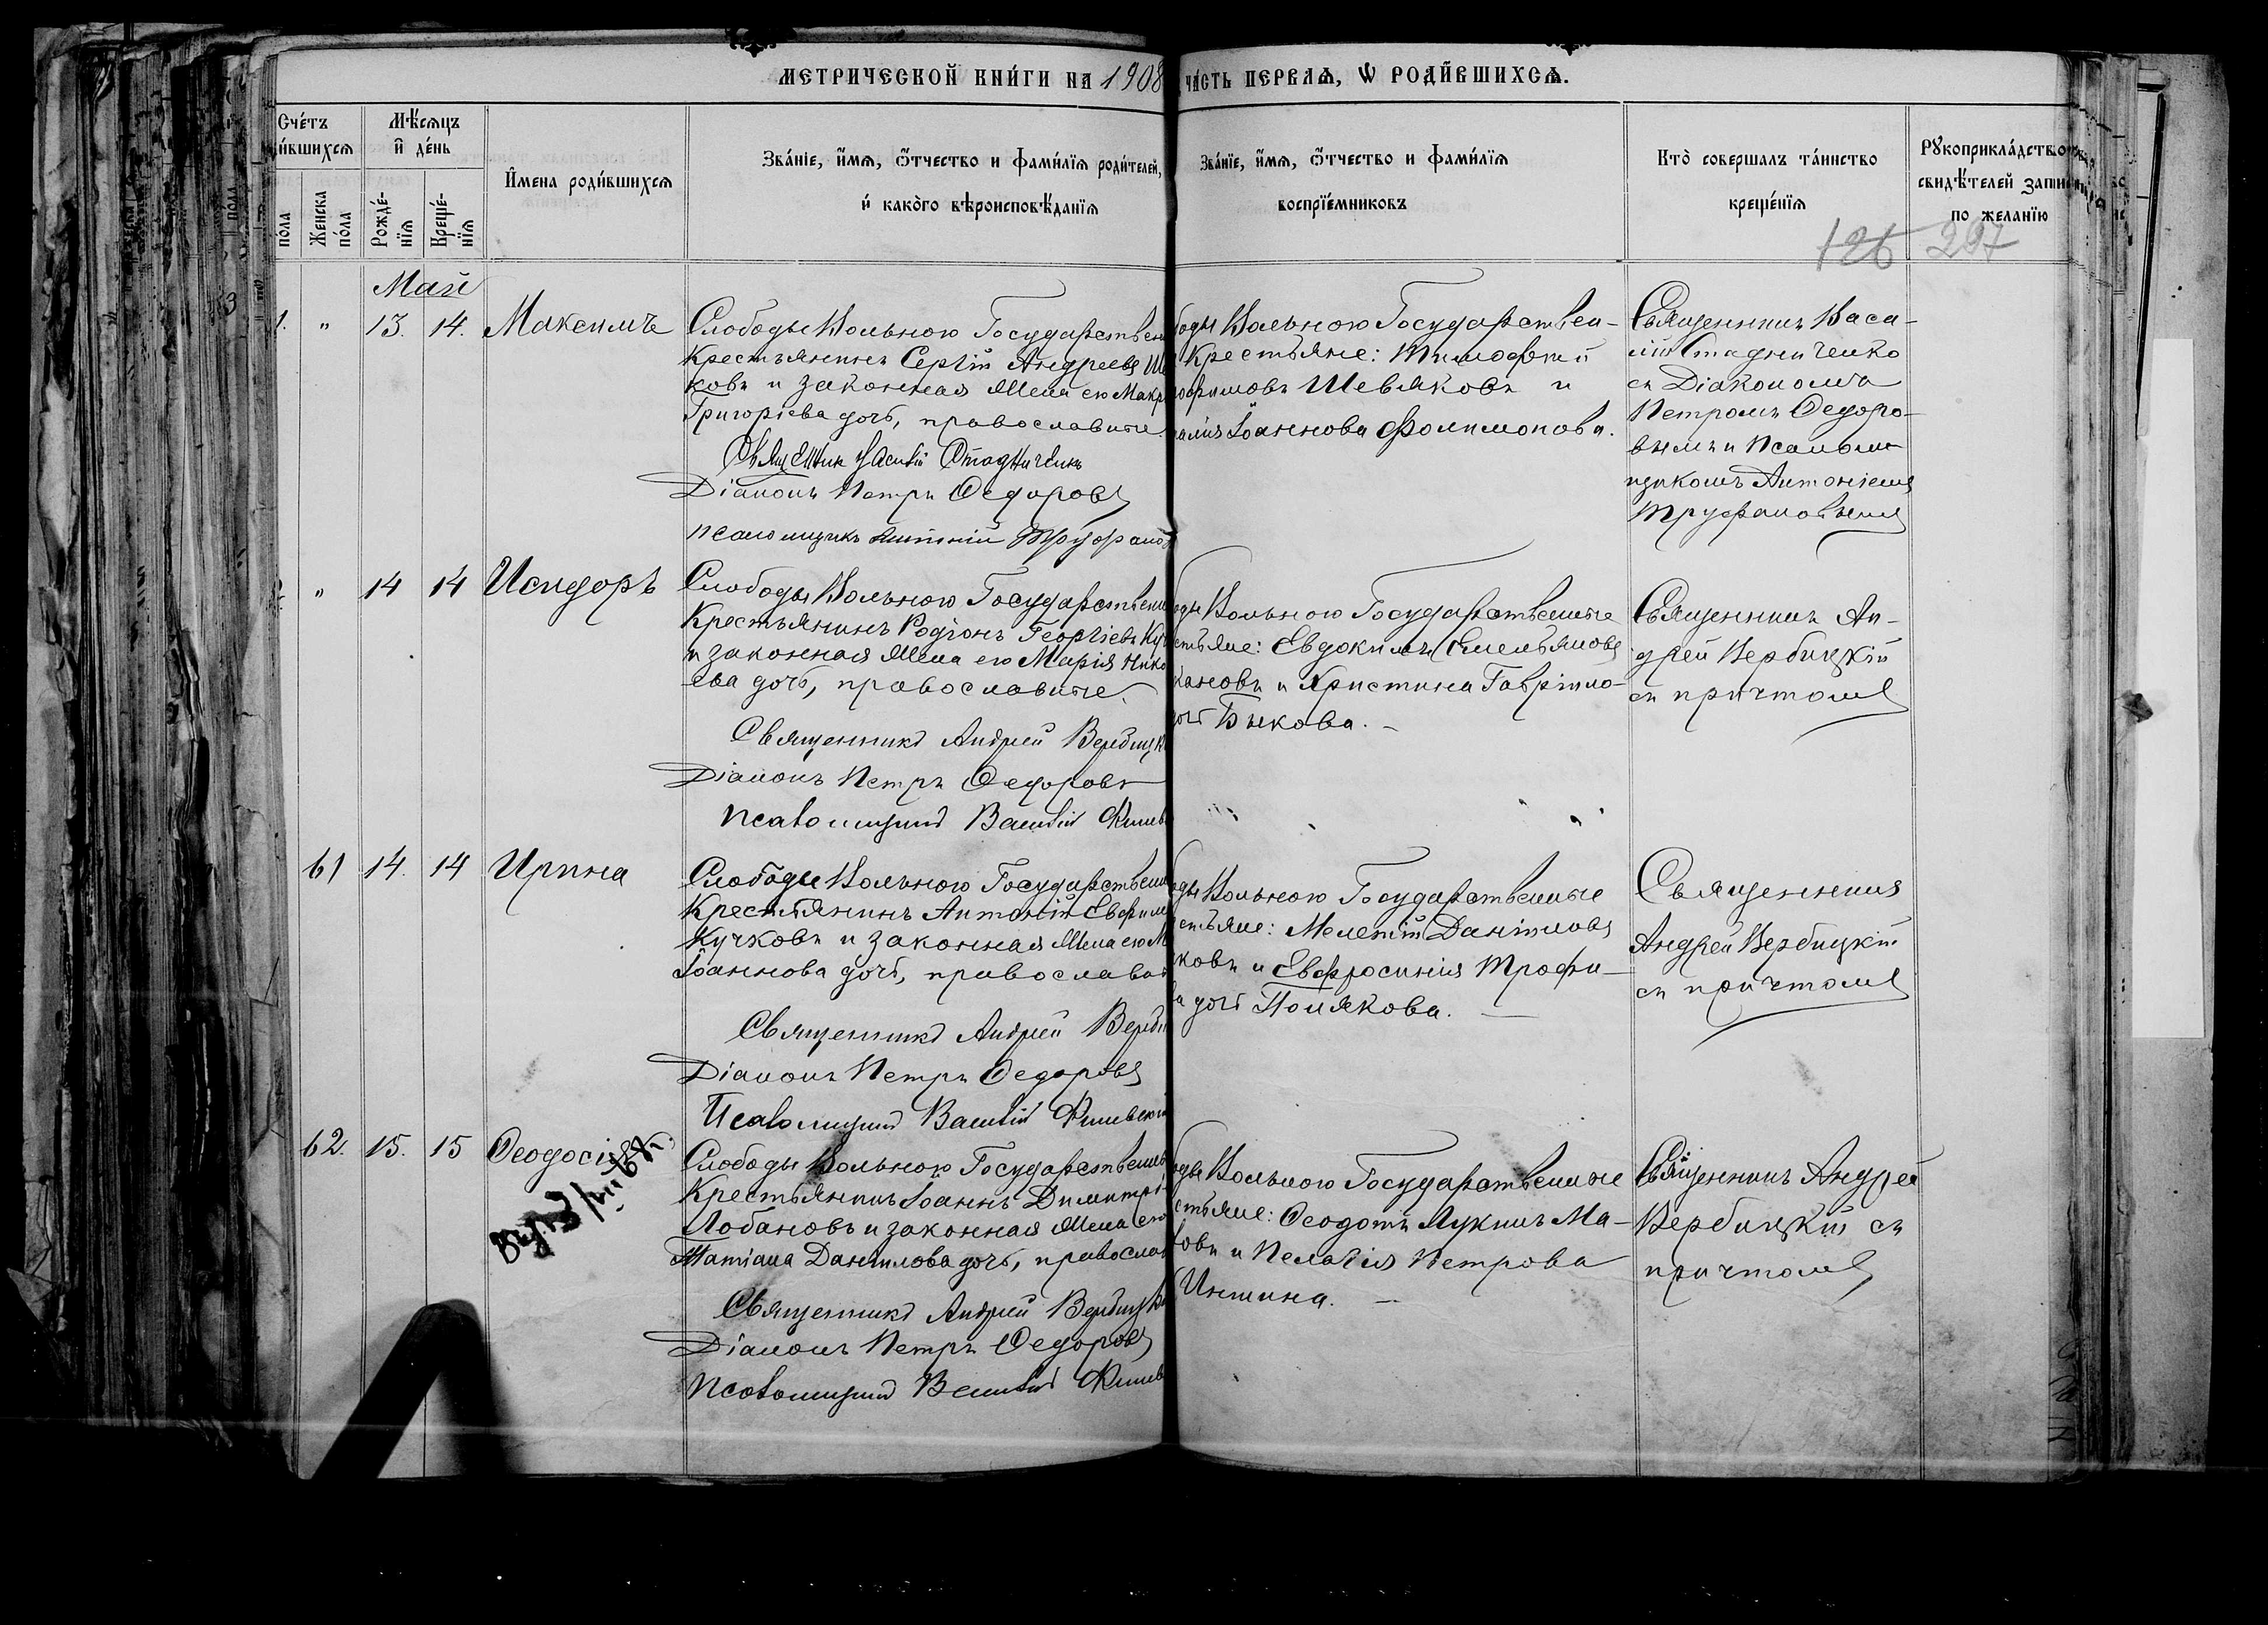 МЕТРИЧЕСКОЙ КНИ́ГИ НА 1908
ЧА́СТЬ ПЕРВАѦ, Ѡ РОДИ́ВШИХСѦ.
Сче́тъ
и́вшихсѧ
Мѣ́сѧцъ
и҆ де́нь
И҆мена роди́вшихсѧ
Зва́нїе, и҆́мѧ, ѻ҆́тчество и фами́лїѧ роди́телей,
и҆ како́гѡ вѣроисповѣ́данїѧ
Зва́нїе, и҆́мѧ, ѻ҆́тчество и фами́лїѧ
воспрїе́мниковъ
Кто̀ совершалъ та́инство
креще́нїѧ
Рꙋкоприкла́дство
свидѣ́телей запи
по жела́нїю
по́ла
Женска
по́ла
Рожде́-
нїѧ
Креще́-
нїѧ
126 297
Май
1. " 13. 14. Максимъ
Слободы Вольною Государствен
Крестьянинъ Сергій Андреевъ Ше
ковъ и законная жена его Макр
Григоріева дочь, православные.
Священник Василій Стадниченко
Діаконъ Петръ Ѳедоровъ
псаломщикъ Антоній Труфанов
боды Вольною Государствен-
Крестьяне: Тимофей
рофимовъ Шевяковъ и
Іоаннова Филимонова.
Священникъ Васи-
лій Стадниченко
съ Діакономъ
Петромъ Ѳедоро-
вымъ и Псалом-
щикомъ Антоніемъ
Труфановымъ
" 14 14 Исидоръ
Слободы Вольною Государственн
Крестьянинъ Родіонъ Георгіевъ Куч
и законная жена его Марія Нико
ева дочь, православные.
Священникъ Андрей Вербицк
Діаконъ Петръ Ѳедоровъ
Псаломщикъ Василій
оды Вольною Государственные
естьяне: Евдокимъ Емельяновъ
кановъ и Христина Гавріило-
дочь Быкова. -
Священникъ Ан-
дрей Вербицкій
съ причтомъ
61 14. 14 Ирина
Слободы Вольною Государственн
Крестьянинъ Антоній Евфим
Кучковъ и законная жена его М
Іоаннова дочь, православн
Священникъ Андрей Верби
Діаконъ Петръ Ѳедоровъ
Псаломщикъ Василій
оды Вольною Государственные
естьяне: Мелетій Даніиловъ
ковъ и Евфросинія Трофи-
а дочь Полякова. —
Священникъ
Андрей Вербицкій
съ причтомъ
62. 15. 15 Ѳеодосія
Слободы Вольною Государственн
Крестьянинъ Іоаннъ Димитрі-
Лобановъ и законная жена его
Татіана Даніилова дочь, православ
Священникъ Андрей Вербицк
Діаконъ Петръ Ѳедоровъ
Псаломщикъ Василій
оды Вольною Государственные
стьяне: Ѳеодотъ Лукинъ Ма-
овъ и Пелагія Петрова
Иншина. —
Священникъ Андрей
Вербицкій съ
причтомъ